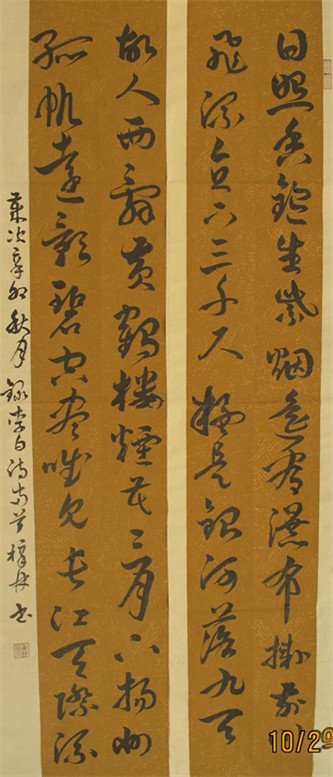 日照香炉生紫烟遥看瀑布挂前川
飞流直下三千尺疑是银河落九天
故人西辞黄鹤楼烟花三月下扬州
孤帆远影碧空尽唯见长江天际流
岁次辛卯秋月录李白诗两首 书
10/29